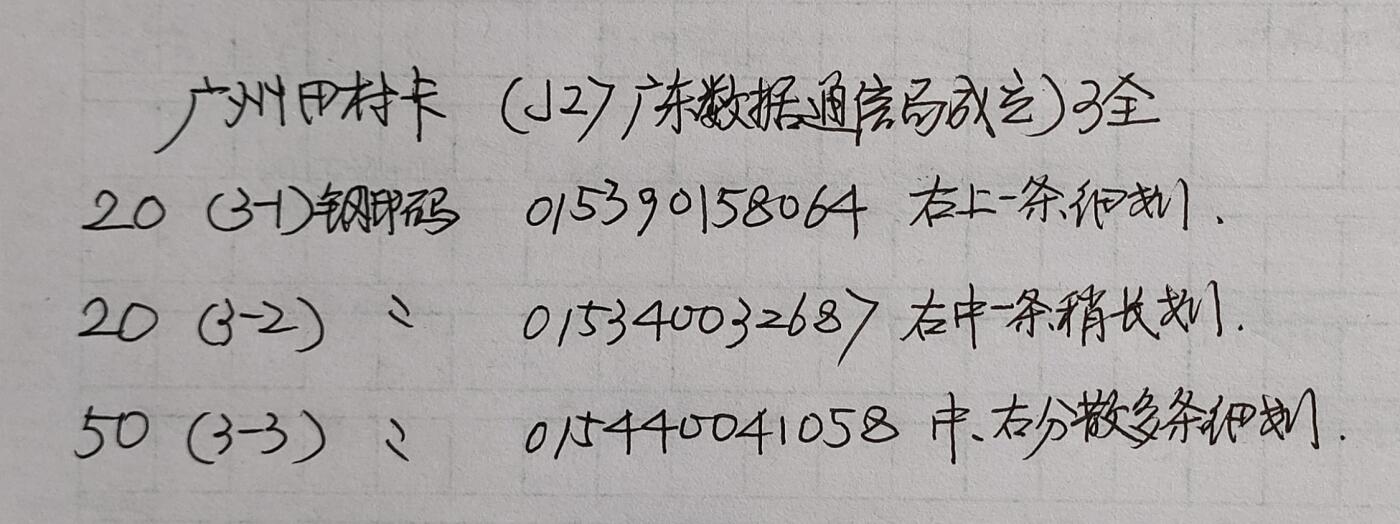 广州田村卡 (J27广东数据通信局成立)3全
20 (3-1)钢印码 015390158064 右上一条细划.
20 (3-2) 〃 015340032687 右中一条稍长划.
50 (3-3) 〃 015440041058 中、右分散多条细划.